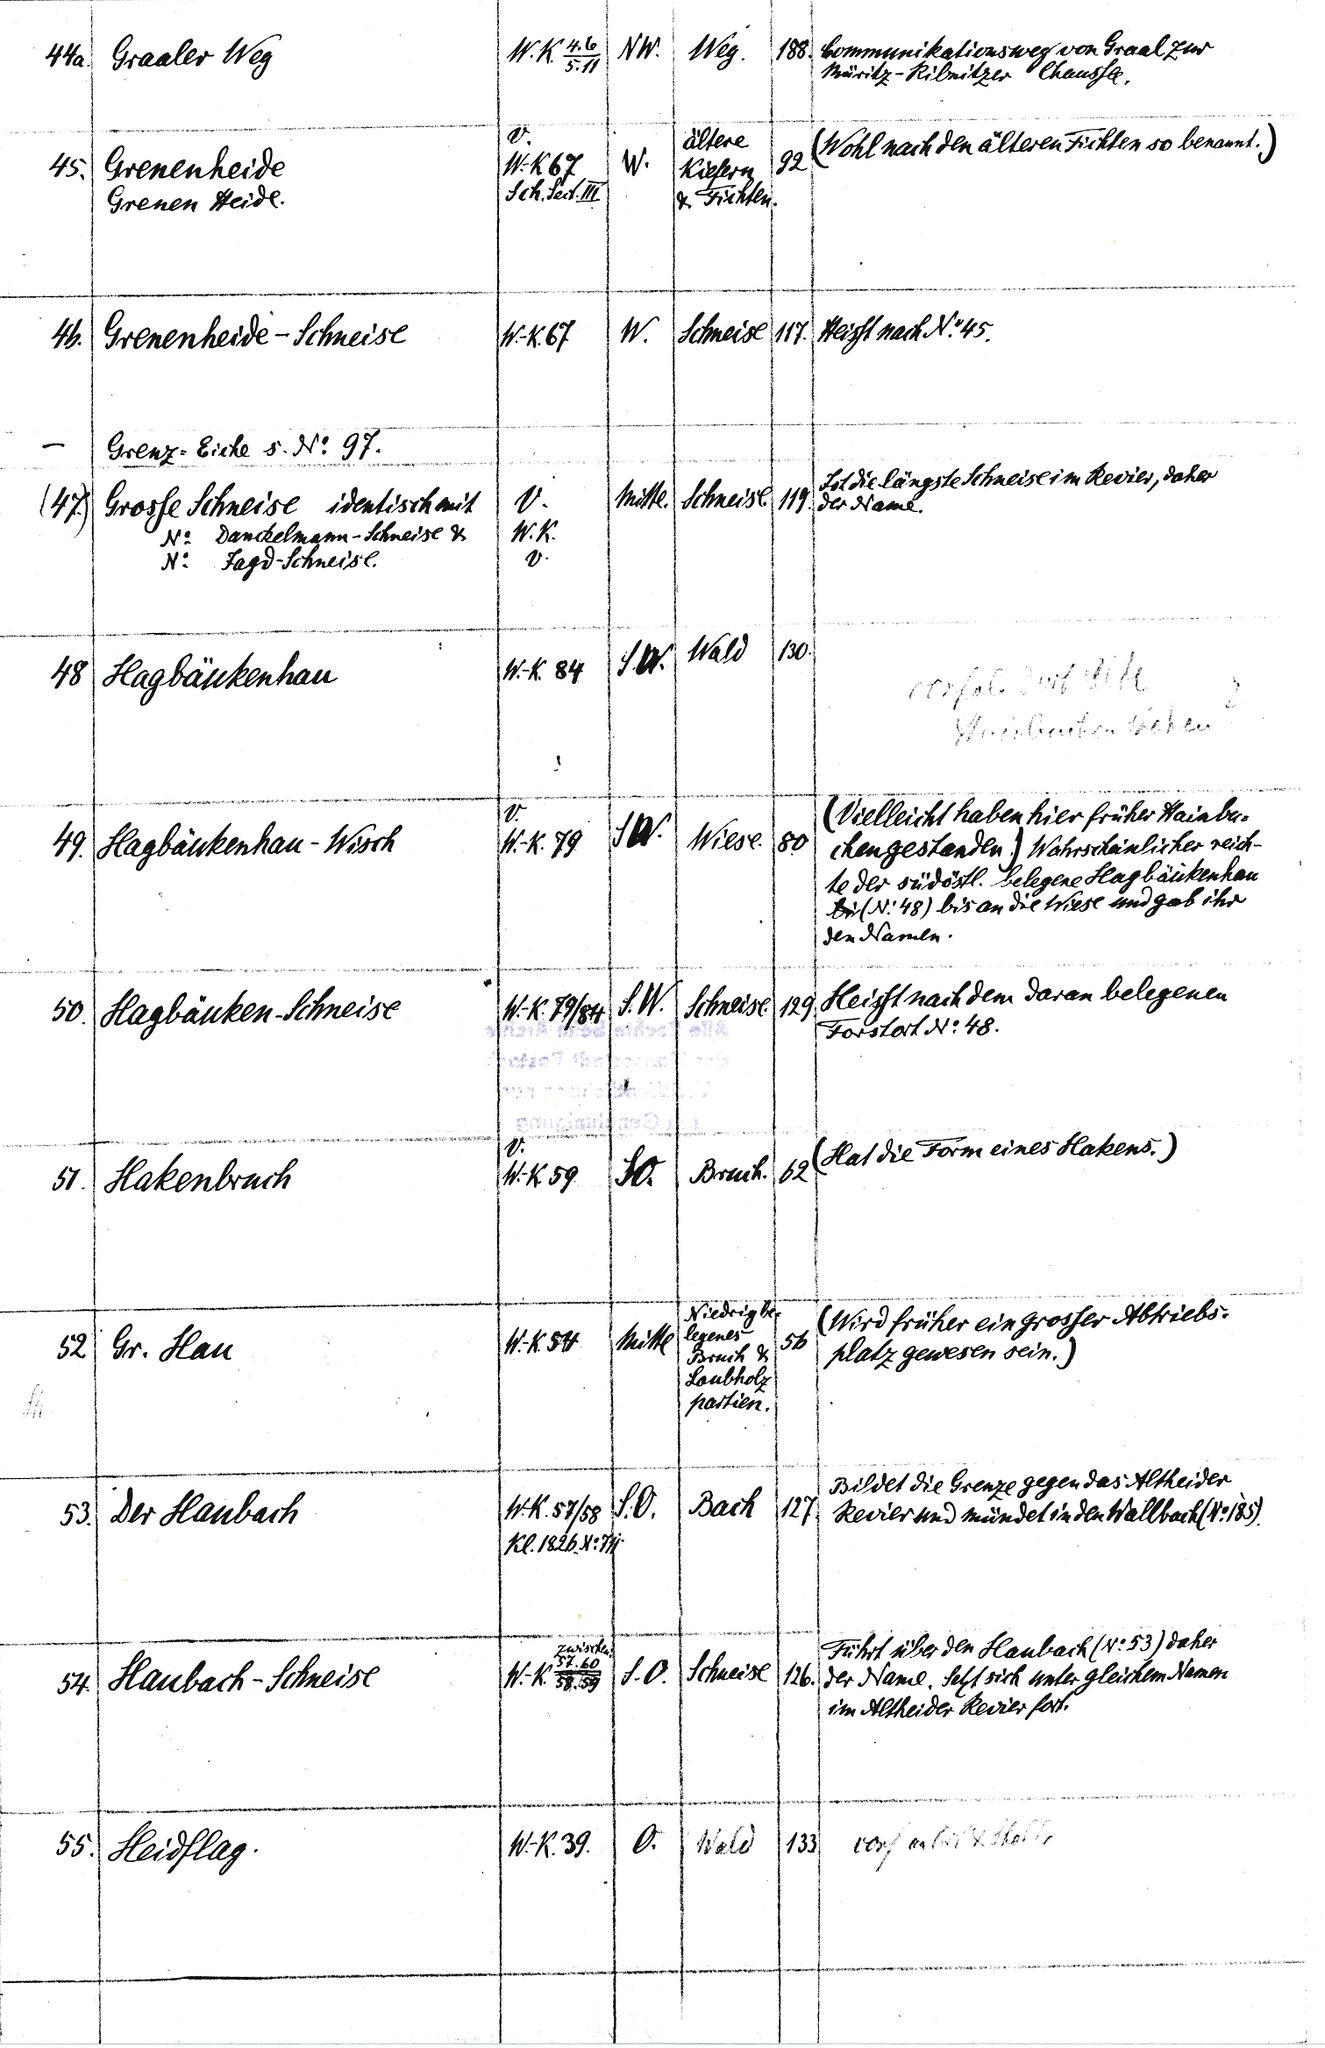 44a. Graaler Weg W.K. 4.6/5.11 NW. Weg. 188. Communikationsweg von Graal zur
Müritz-Ribnitzer Chaussee.
45. Grenenheide V. W.-K. 67 W. ältere 92 (Wohl nach den älteren Fichten so benannt.)
Grenen Heide. Sch. Sect. III Kiefern
& Fichten.
46. Grenenheide-Schneise W.-K. 67 W. Schneise 117. Heisst nach No. 45.
— Grenz-Eiche s. No. 97.
(47.) Grosse Schneise identisch mit V. Mitte. Schneise 119. Ist die längste Schneise im Revier, daher
No. Danckelmann-Schneise & W.K. der Name.
No. Jagd-Schneise. V.
48 Hagbäukenhau W.-K. 84 S.W. Wald 130.
49. Hagbäukenhau-Wisch V. W.-K. 79 S.W. Wiese. 80 (Vielleicht haben hier früher Hainbu-
chen gestanden.) Wahrscheinlicher reich-
te der südöstl. belegene Hagbäukenhau
(No. 48) bis an die Wiese und gab ihr
den Namen.
50. Hagbäuken-Schneise W.-K. 79/84 S.W. Schneise. 129. Heisst nach dem daran belegenen
Forstort No. 48.
51. Hakenbruch V. W.-K. 59 S.O. Bruch. 62 (Hat die Form eines Hakens.)
52 Gr. Hau W.-K. 54 Mitte Niedrig be- 56 (Wird früher ein grosser Abtriebs-
legenes platz gewesen sein.)
Bruch &
Laubholz
partien.
53. Der Haubach W.-K. 57/58 S.O. Bach 127. Bildet die Grenze gegen das Altheider
Kl. 1826. No. Revier und mündet in den Wallbach (No. 185).
54. Haubach-Schneise W.-K. zwischen 57.60/58.59 S.O. Schneise 126. Führt über den Haubach (No. 53) daher
der Name. Setzt sich unter gleichem Namen
im Altheider Revier fort.
55. Heidflag. W.-K. 39. O. Wald 133